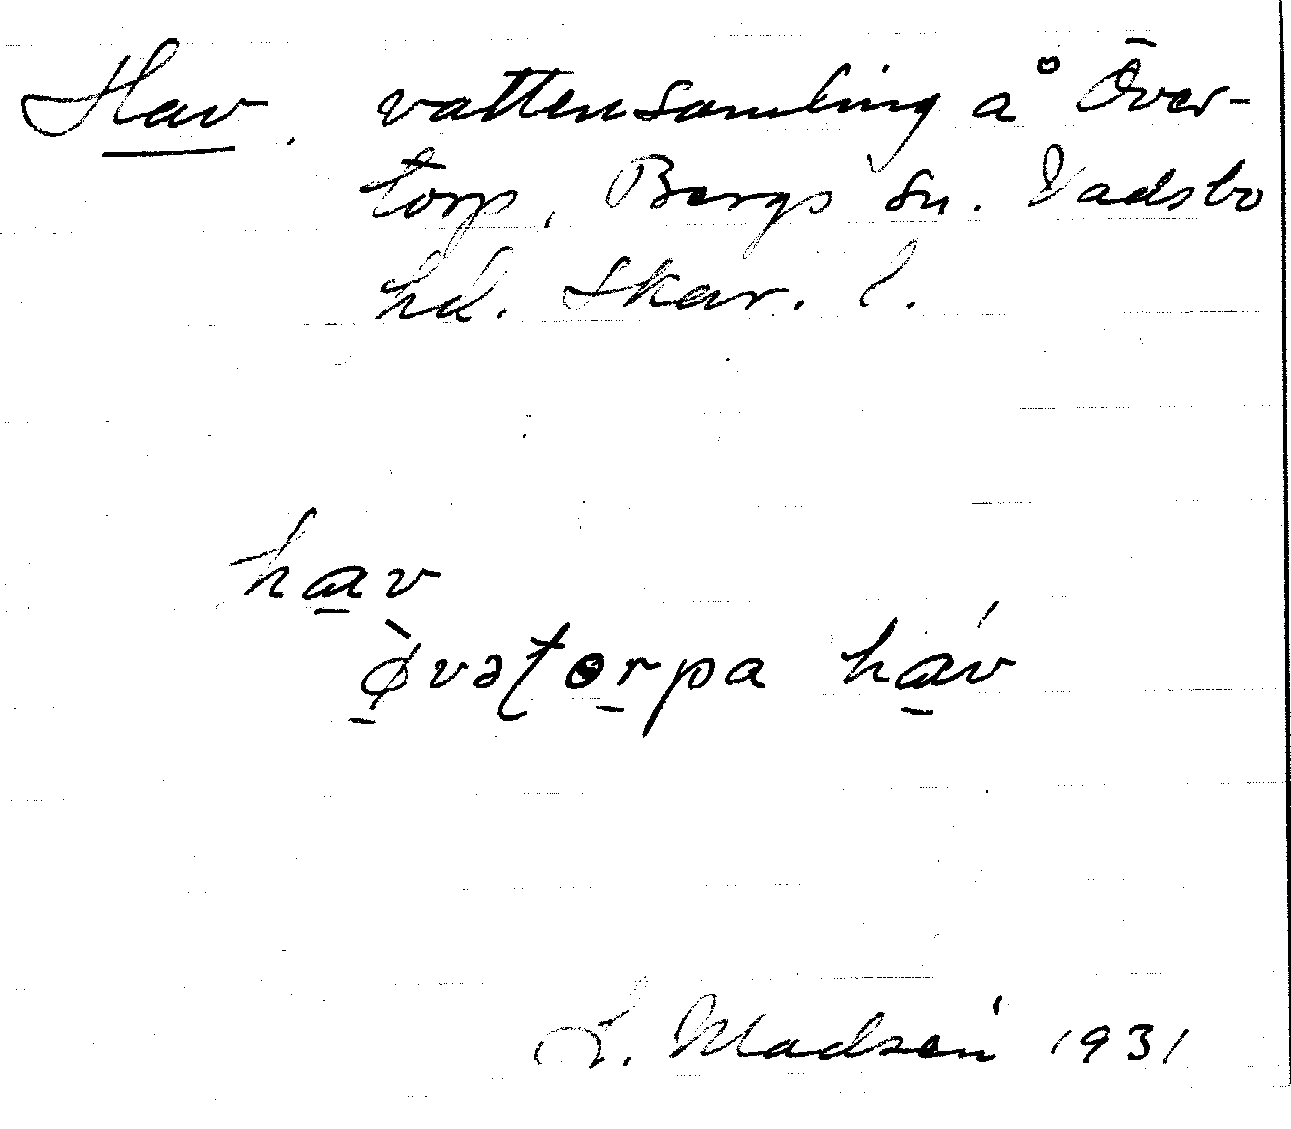 Hav. vattensamling å Över-
torp, Bergs sn. Vadsbo
hd. Skar. l.
ha̲v
ø̲̀vəto̲rpa ha̲v́
L. Madsén 1931